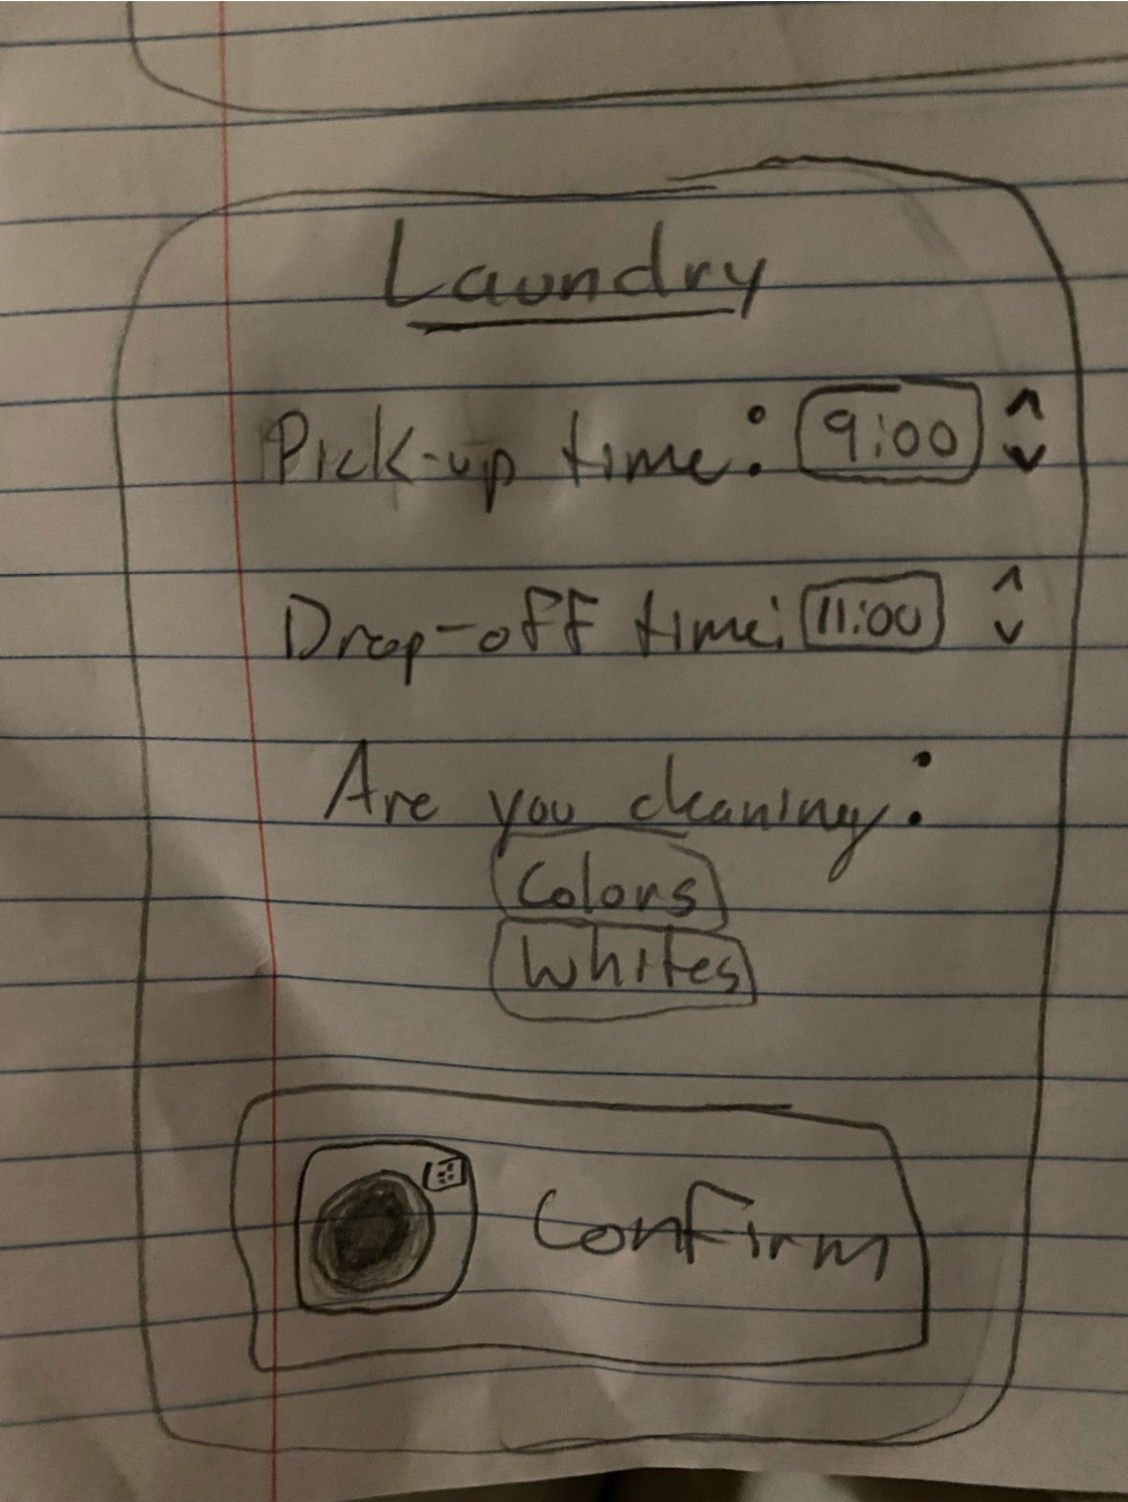 Laundry
Pick-up time: 9:00
Drop-off time: 11:00
Are you cleaning:
Colors
Whites
Confirm